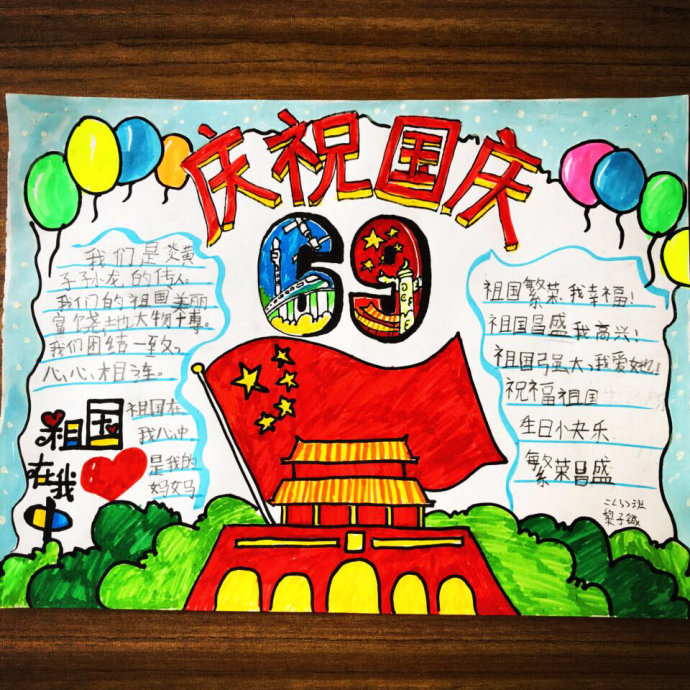 庆祝国庆
69
我们是炎黄
子孙龙的传人。
我们的祖国美丽
富饶地大物博。
我们团结一致,
心心相连。
祖国在
我心中
是我的
妈妈
祖国
在我
中
祖国繁荣,我幸福!
祖国昌盛我高兴!
祖国强大,我爱她!
祝福祖国
生日快乐
繁荣昌盛